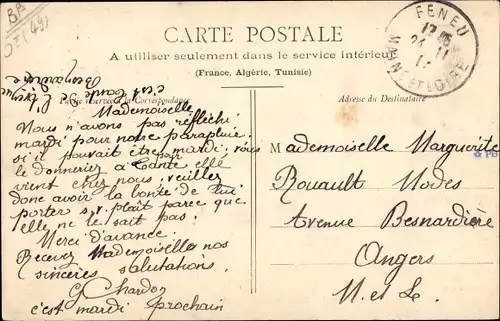 CARTE POSTALE
A utiliser seulement dans le service intérieur
(France, Algérie, Tunisie)
Partie réservée à la Correspondance
Adresse du Destinataire
FENEU
24 11
MAINE-ET-LOIRE
Mademoiselle
Nous n'avons pas réfléchi
mardi pour notre parapluie.
si il pouvait être mardi, vous
le donneriez à tante elle
vient chez nous, veuillez
donc avoir la bonté de lui
porter s.v. plait parce que
elle ne le sait pas.
Merci d'avance.
Recevez Mademoiselle nos
sincères salutations.
G Chardon
c'est mardi prochain
c'est tante
Mademoiselle Marguerite
Rouault Modes
Avenue Besnardière
Angers
M. et L.